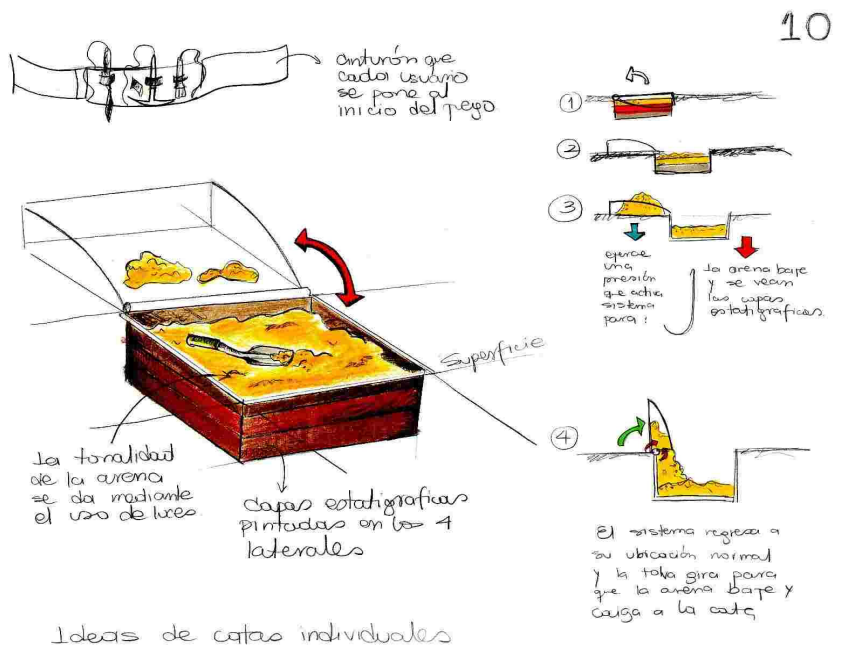 10
cinturón que
cada usuario
se pone al
inicio del juego
1
2
3
ejerce
una
presión
que activa
sistema
para:
La arena baje
y se vean
las capas
estatigraficas
Superficie
La tonalidad
de la arena
se da mediante
el uso de luces
capas estatigraficas
pintadas en los 4
laterales
4
El sistema regresa a
su ubicación normal
y la tolva gira para
que la arena baje y
caiga a la cata
Ideas de catas individuales